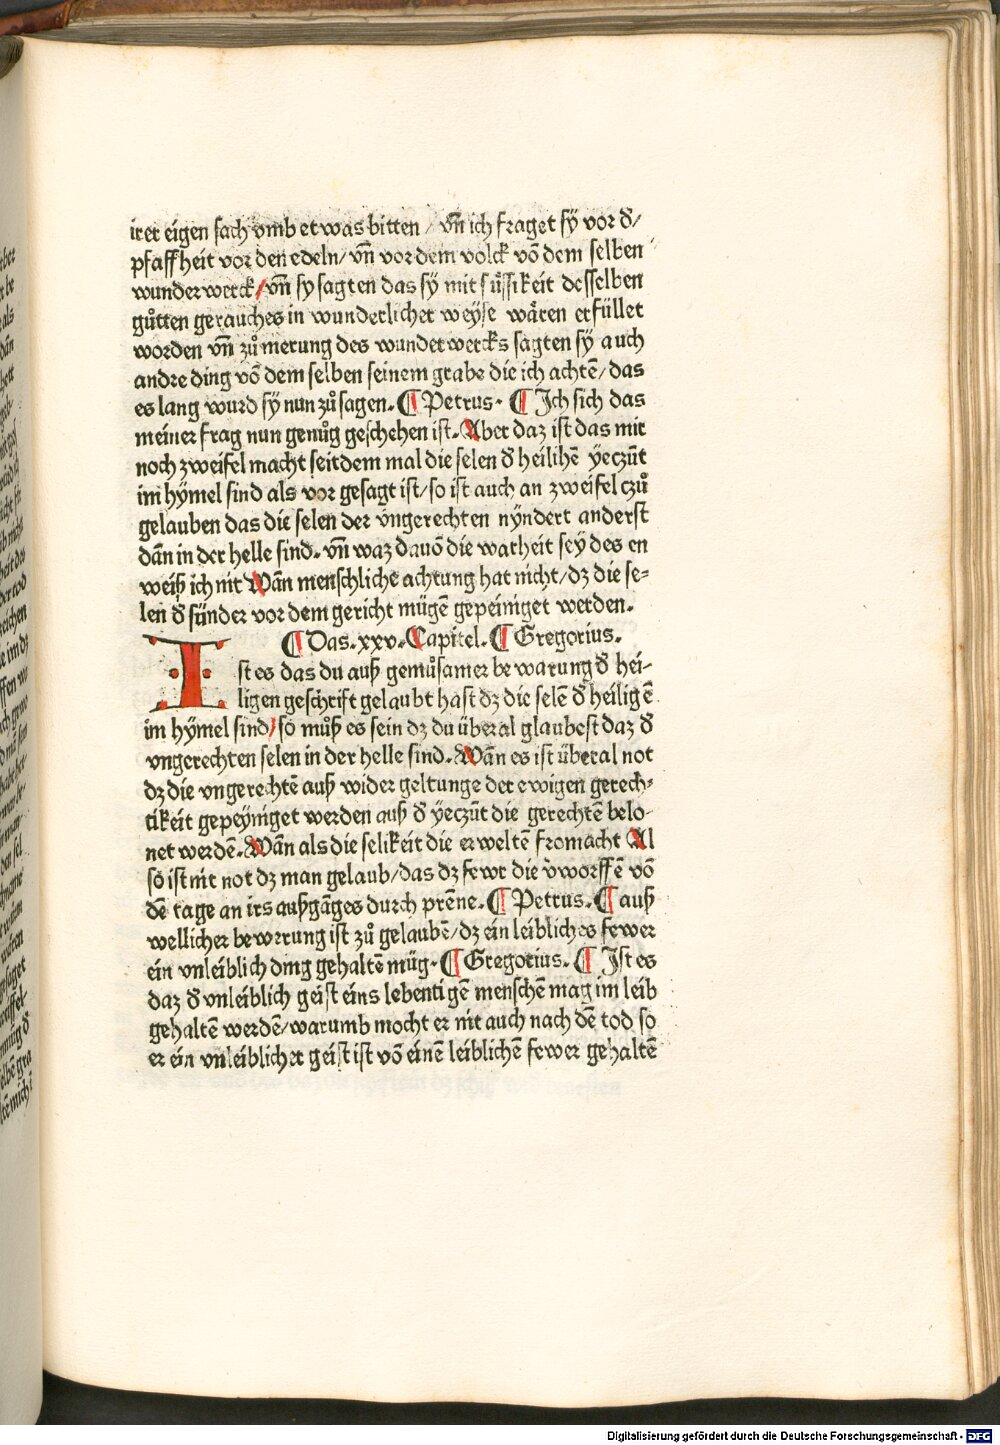 irer eigen sach vmb etwas bitten / vñ ich fraget sÿ vor đ/
pfaffheit vor den edeln/ vñ vor dem volck võ dem selben
wunderwerck/ vñ sy sagten das sÿ mit sůssikeit desselben
gůtten gerauches in wunderlicher weyse wären erfüllet
worden vñ zů merung des wunderwercks sagten sÿ auch
andre ding võ dem selben seinem grabe die ich achtẽ/ das
es lang wurd sÿ nun zů sagen. ¶ Petrus. ¶ Ich sich das
meiner frag nun genůg geschehen ist. Aber daz ist das mir
noch zweifel macht seitdem mal die selen đ heilihẽ yeczũt
im hÿmel sind als vor gesagt ist/ so ist auch an zweifel czů
gelauben das die selen der vngerechten nÿndert anderst
dañ in der helle sind. vñ waz dauõ die warheit sey des en
weiß ich nit Wañ menschliche achtung hat nicht/ dz die se=
len đ sünder vor dem gericht mügẽ gepeiniget werden.
¶ Das. xxv. Capitel. ¶ Gregorius.
Ist es das du auß gemůsamer bewarung đ hei-
ligen geschrift gelaubt hast dz die selẽ đ heiligẽ
im hÿmel sind/ so můß es sein dz du überal glaubest daz đ
vngerechten selen in der helle sind. Wañ es ist überal not
dz die vngerechtẽ auß wider geltunge der ewigen gerech-
tikeit gepeÿniget werden auß đ ÿeczũt die gerechtẽ belo-
net werdẽ. Wañ als die selikeit die erweltẽ fromacht Al
so ist nit not dz man gelaub/ das dz fewr die v̄worffẽ võ
dẽ tage an irs außgãges durch prẽne. ¶ Petrus. ¶ auß
wellicher bewerung ist zů gelaubẽ/ dz ein leibliches fewer
ein vnleiblich ding gehaltẽ müg. ¶ Gregorius. ¶ Ist es
daz đ vnleiblich geist eins lebentigẽ menschẽ mag im leib
gehaltẽ werdẽ/ warumb mocht er nit auch nach dẽ tod so
er ein vnleiblicher geist ist võ einẽ leiblichẽ fewer gehaltẽ
Digitalisierung gefördert durch die Deutsche Forschungsgemeinschaft - DFG